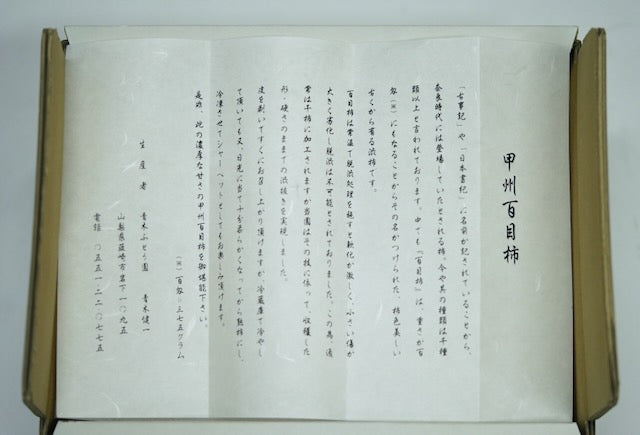 甲州百目柿
「古事記」や「日本書紀」に名前が記されていることから、
奈良時代には登場していたとされる柿。今や其の種類は千種
類以上と言われております。中でも「百目柿」は、重さが百
匁(※)にもなることからその名がつけられた、柿色美しい
古くから有る渋柿です。
百目柿は常温で脱渋処理を施すと軟化が激しく、小さい傷が
大きく劣化し脱渋は不可能とされておりました。この為、通
常は干柿に加工されますが当園はその技に依って、収穫した
形・硬さのままでの渋抜きを実現しました。
皮を剥いてすぐにお召し上がり頂けますが、冷蔵庫で冷やし
て頂いても又、日光に当て十分柔らかくなってから熟柿にし、
冷凍させてシャーベットとしてもお楽しみ頂けます。
是非、此の濃厚な甘さの甲州百目柿を御堪能下さい。
(※)百匁＝三七五グラム
生産者 青木ぶどう園 青木健一
山梨県韮崎市岩下一〇九五
電話 〇五五一・二二・〇七七五